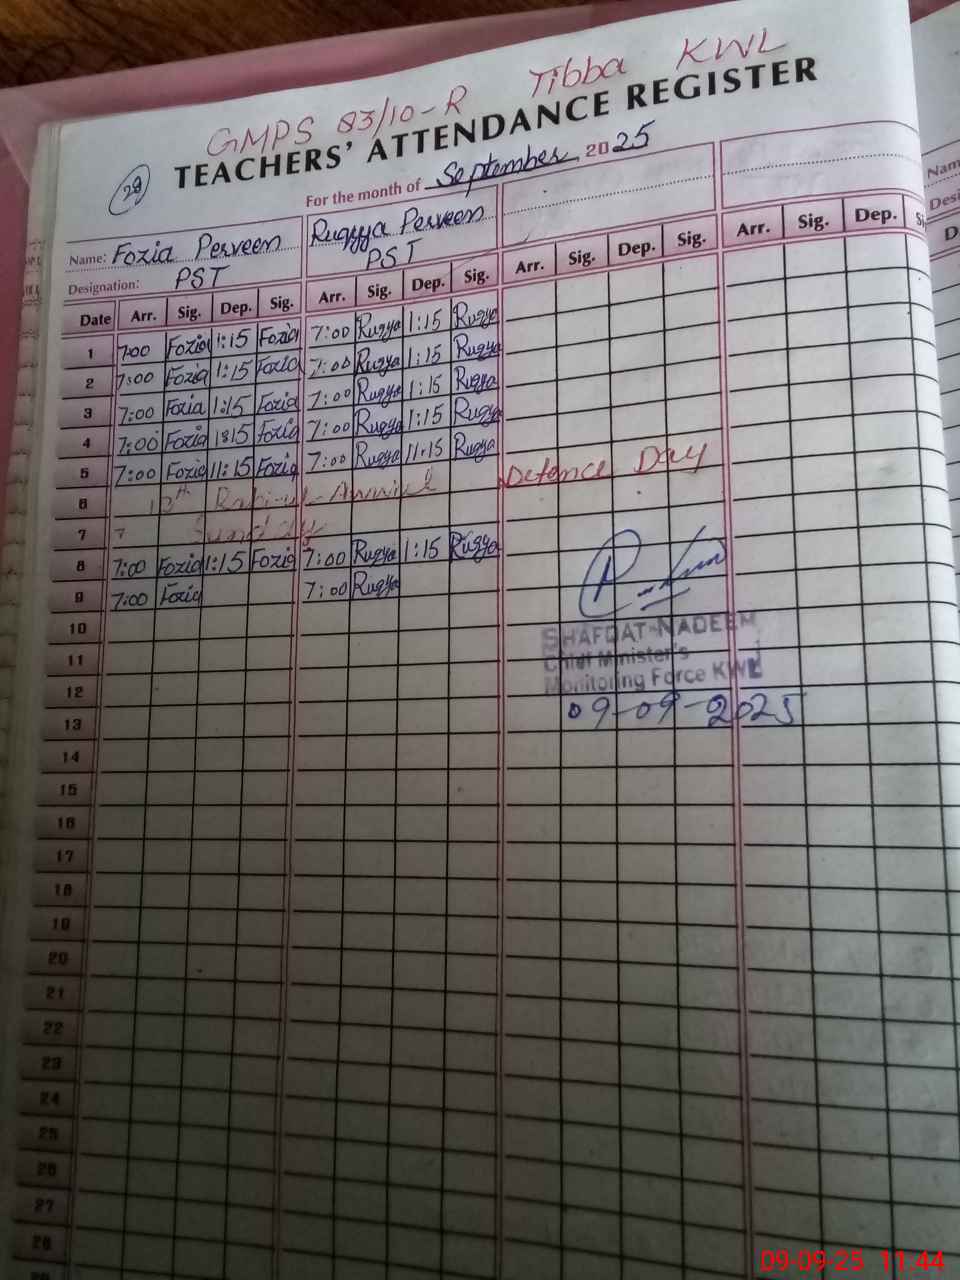 GMPS 83/10-R Tibba KWL
TEACHERS' ATTENDANCE REGISTER
29
For the month of September 2025
Name: Fozia Perveen Ruqyya Perveen
Designation: PST PST
Date Arr. Sig. Dep. Sig. Arr. Sig. Dep. Sig. Arr. Sig. Dep. Sig. Arr. Sig. Dep.
1 7:00 Fozia 1:15 Fozia 7:00 Ruqya 1:15 Ruqya
2 7:00 Fozia 1:15 Fozia 7:00 Ruqya 1:15 Ruqya
3 7:00 Fozia 1:15 Fozia 7:00 Ruqya 1:15 Ruqya
4 7:00 Fozia 1:15 Fozia 7:00 Ruqya 1:15 Ruqya
5 7:00 Fozia 11:15 Fozia 7:00 Ruqya 11:15 Ruqya
6 12th Rabi-ul-Awwal Defence Day
7 Sunday
8 7:00 Fozia 1:15 Fozia 7:00 Ruqya 1:15 Ruqya
9 7:00 Fozia 7:00 Ruqya
10
SHAFQAT NADEEM
11
Chief Minister's
12
Monitoring Force KWL
13
09-09-2025
14
15
16
17
18
19
20
21
22
23
24
25
26
27
28
Name
Desi
D
09-09-25 11:44